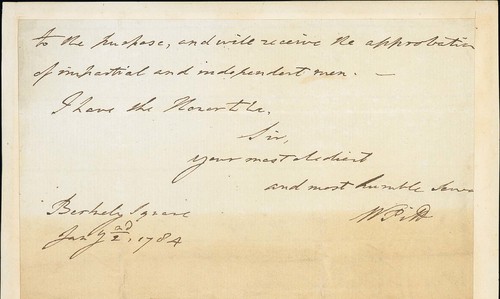 to the purpose, and will receive the approbation
of impartial and independent men. —
I have the Honor to be.
Sir,
your most obedient
and most humble Serva
W Pitt
Berkely Square
Jany 2d, 1784